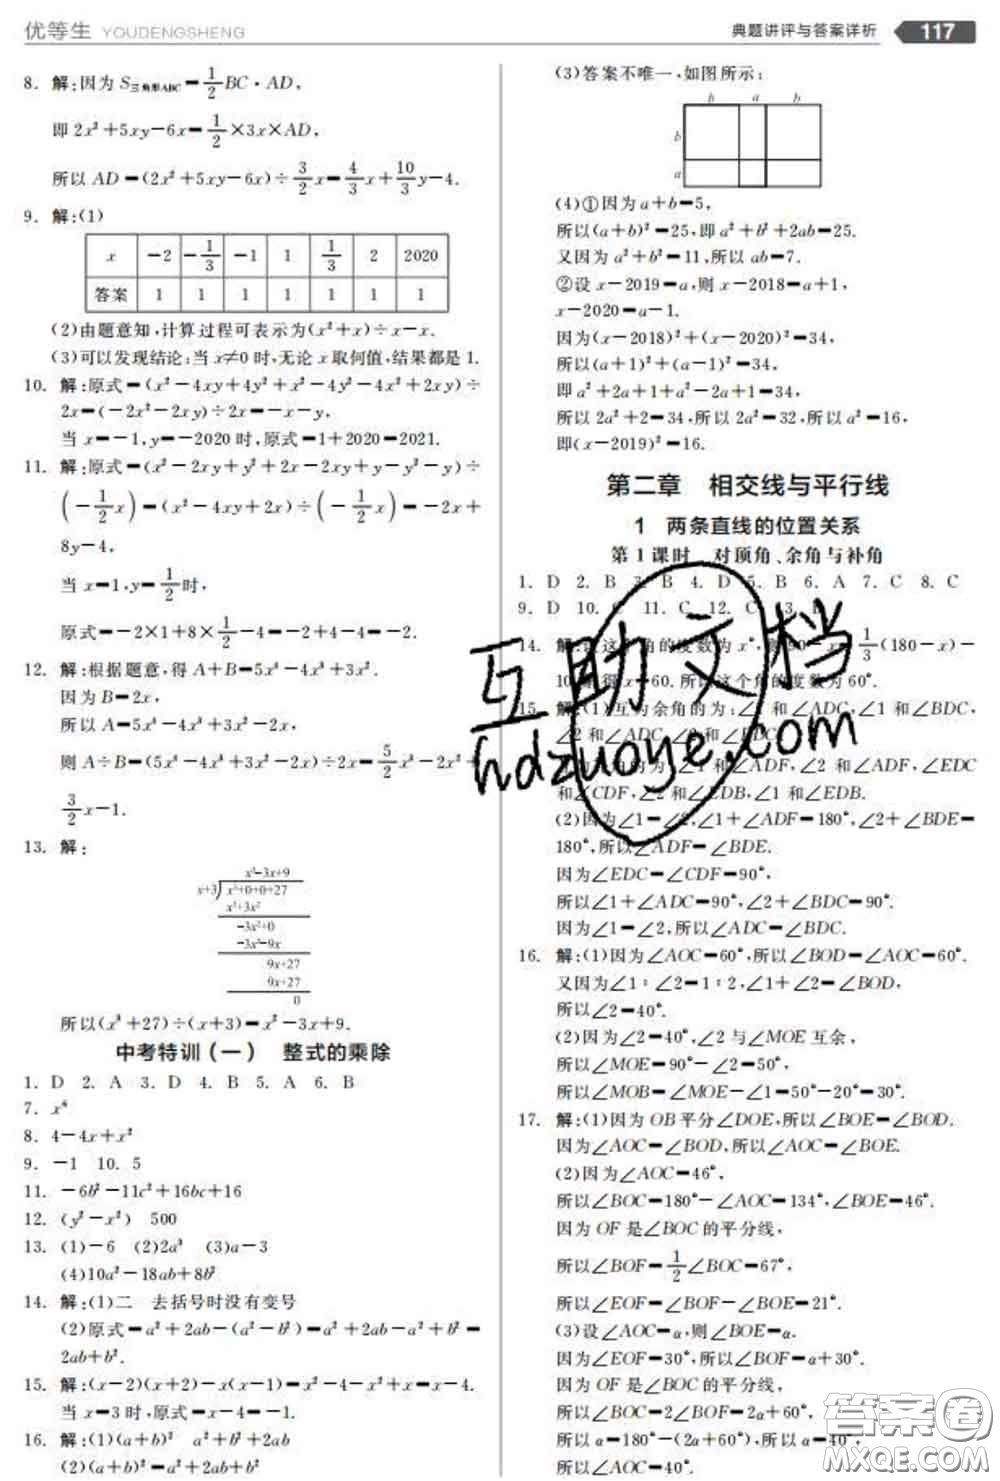 优等生 YOUDENGSHENG
典题讲评与答案详析 117
8. 解:因为 S三角形ABC=1/2 BC·AD,
即 2x²+5xy-6x=1/2×3x×AD,
所以 AD=(2x²+5xy-6x)÷3/2 x=4/3 x+10/3 y-4.
9. 解:(1)
x -2 -1/3 -1 1 1/3 2 2020
答案 1 1 1 1 1 1 1
(2)由题意知,计算过程可表示为(x²+x)÷x-x.
(3)可以发现结论:当 x≠0 时,无论 x 取何值,结果都是 1.
10. 解:原式=(x²-4xy+4y²+x²-4y²-4x²+2xy)÷
2x=(-2x²-2xy)÷2x=-x-y,
当 x=-1,y=-2020 时,原式=1+2020=2021.
11. 解:原式=(x²-2xy+y²+2x-2xy+y-y²-y)÷
(-1/2 x)=(x²-4xy+2x)÷(-1/2 x)=-2x+
8y-4,
当 x=1,y=1/2 时,
原式=-2×1+8×1/2-4=-2+4-4=-2.
12. 解:根据题意,得 A+B=5x⁴-4x³+3x².
因为 B=2x,
所以 A=5x⁴-4x³+3x²-2x,
则 A÷B=(5x⁴-4x³+3x²-2x)÷2x=5/2 x³-2x²+
3/2 x-1.
13. 解:
x²-3x+9
x+3 x³+0+0+27
x³+3x²
-3x²+0
-3x²-9x
9x+27
9x+27
0
所以(x³+27)÷(x+3)=x²-3x+9.
中考特训(一) 整式的乘除
1. D 2. A 3. D 4. B 5. A 6. B
7.
8. 4-4x+x²
9. -1 10. 5
11. -6b²-11c²+16bc+16
12. (y²-x²) 500
13. (1)-6 (2)2a³ (3)a-3
(4)10a²-18ab+8b²
14. 解:(1)二 去括号时没有变号
(2)原式=a²+2ab-(a²-b²)=a²+2ab-a²+b²=
2ab+b².
15. 解:(x-2)(x+2)-x(x-1)=x²-4-x²+x=x-4.
当 x=3 时,原式=x-4=-1.
16. 解:(1)(a+b)² a²+b²+2ab
(2)(a+b)²=a²+b²+2ab
(3)答案不唯一,如图所示:
b a b
b
a
(4)①因为 a+b=5,
所以(a+b)²=25,即 a²+b²+2ab=25.
又因为 a²+b²=11,所以 ab=7.
②设 x-2019=a,则 x-2018=a+1,
x-2020=a-1.
因为(x-2018)²+(x-2020)²=34,
所以(a+1)²+(a-1)²=34,
即 a²+2a+1+a²-2a+1=34,
所以 2a²+2=34,所以 2a²=32,所以 a²=16,
即(x-2019)²=16.
第二章 相交线与平行线
1 两条直线的位置关系
第 1 课时 对顶角、余角与补角
1. D 2. B 3. B 4. D 5. B 6. A 7. C 8. C
9. D 10. C 11. C 12. C
14. 解:设这个角的度数为 x°,则 90-x=1/3(180-x)-
10,解得 x=60.所以这个角的度数为 60°.
15. 解:(1)互为余角的为:∠1 和∠ADC,∠1 和∠BDC,
∠2 和∠ADC,∠2 和∠BDC.
互为补角的为:∠1 和∠ADF,∠2 和∠ADF,∠EDC
和∠CDF,∠2 和∠EDB,∠1 和∠EDB.
(2)因为∠1=∠2,∠1+∠ADF=180°,∠2+∠BDE=
180°,所以∠ADF=∠BDE.
因为∠EDC=∠CDF=90°,
所以∠1+∠ADC=90°,∠2+∠BDC=90°.
因为∠1=∠2,所以∠ADC=∠BDC.
16. 解:(1)因为∠AOC=60°,所以∠BOD=∠AOC=60°.
又因为∠1∶∠2=1∶2,∠1+∠2=∠BOD,
所以∠2=40°.
(2)因为∠2=40°,∠2 与∠MOE 互余,
所以∠MOE=90°-∠2=50°,
所以∠MOB=∠MOE-∠1=50°-20°=30°.
17. 解:(1)因为 OB 平分∠DOE,所以∠BOE=∠BOD.
因为∠AOC=∠BOD,所以∠AOC=∠BOE.
(2)因为∠AOC=46°,
所以∠BOC=180°-∠AOC=134°,∠BOE=46°.
因为 OF 是∠BOC 的平分线,
所以∠BOF=1/2∠BOC=67°,
所以∠EOF=∠BOF-∠BOE=21°.
(3)设∠AOC=α,则∠BOE=α.
因为∠EOF=30°,所以∠BOF=α+30°.
因为 OF 是∠BOC 的平分线,
所以∠BOC=2∠BOF=2α+60°,
所以 α=180°-(2α+60°),所以 α=40°,
即∠AOC=40°.
互助文档
hdzuoye.com
答案圈
MXQE.COM